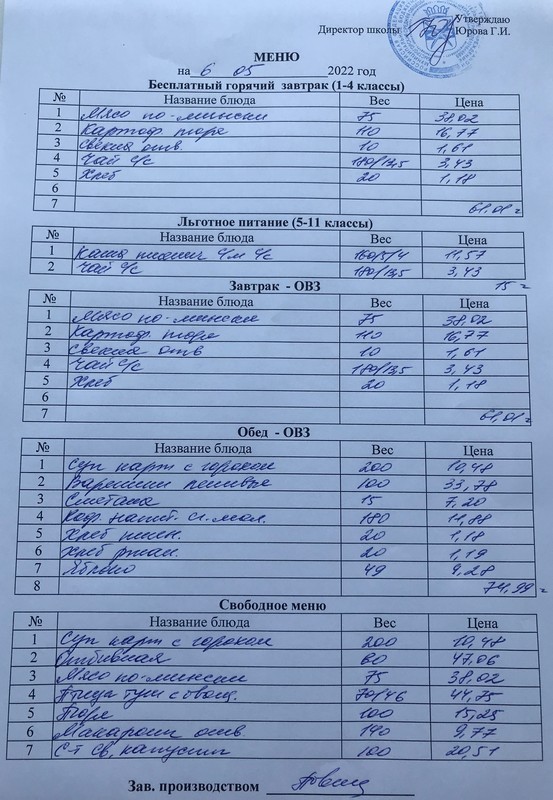 Утверждаю
Директор школы Юрова Г.И.
МЕНЮ
на 6 05 2022 год
Бесплатный горячий завтрак (1-4 классы)
№ Название блюда Вес Цена
1 Мясо по-мински 75 38,02
2 Картоф. пюре 110 16,77
3 Свекла отв 10 1,61
4 Чай с/с 180/13,5 3,43
5 Хлеб 20 1,18
6
7 61,01
Льготное питание (5-11 классы)
№ Название блюда Вес Цена
1 Каша пшенич с/м с/с 160/5/4 11,57
2 Чай с/с 180/13,5 3,43
15
Завтрак - ОВЗ
№ Название блюда Вес Цена
1 Мясо по-мински 75 38,02
2 Картоф. пюре 110 16,77
3 Свекла отв 10 1,61
4 Чай с/с 180/13,5 3,43
5 Хлеб 20 1,18
6
7 61,01
Обед - ОВЗ
№ Название блюда Вес Цена
1 Суп карт с горохом 200 10,48
2 Вареники ленивые 100 33,78
3 Сметана 15 7,20
4 Коф. напит. сг. мол. 180 11,88
5 Хлеб пшен. 20 1,18
6 Хлеб ржан. 20 1,19
7 Яблоко 49 9,28
8 74,99
Свободное меню
№ Название блюда Вес Цена
1 Суп карт с горохом 200 10,48
2 Отбивная 60 47,06
3 Мясо по-мински 75 38,02
4 Птица туш с овощ. 70/46 44,75
5 Пюре 100 15,25
6 Макароны отв 140 9,77
7 С-т св, капусты 100 20,51
Зав. производством